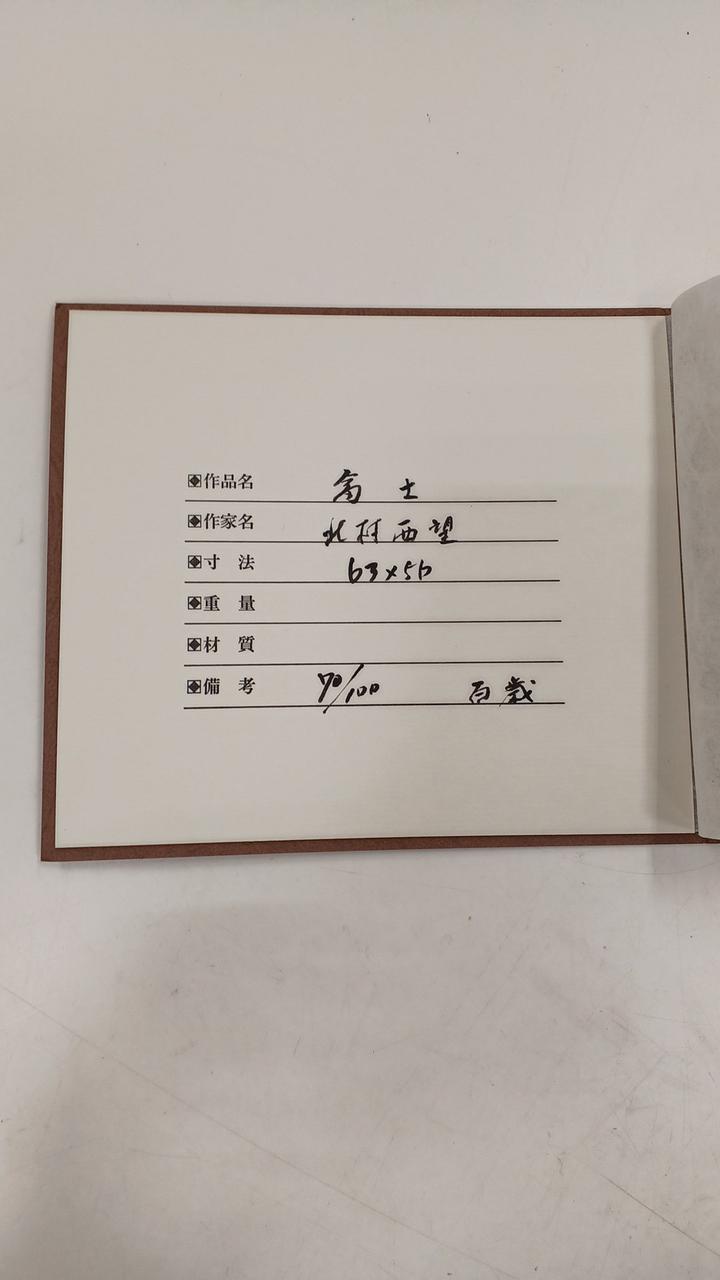 作品名 富士
作家名 北村西望
寸 法 63×56
重 量
材 質
備 考 70/100 百歳